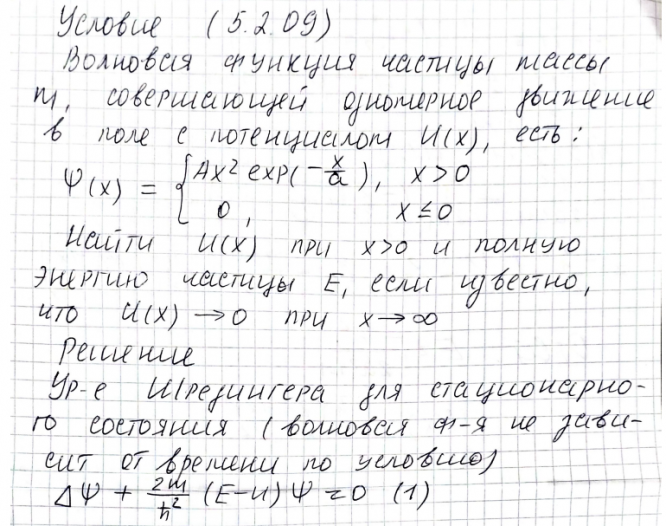 Условие (5.2.09)
Волновая функция частицы массы
m, совершающей одномерное движение
в поле с потенциалом U(x), есть:
Ψ(x) = { Ax² exp(-x/a), x>0
0, x≤0
Найти U(x) при x>0 и полную
энергию частицы E, если известно,
что U(x) → 0 при x→∞
Решение
Ур-е Шредингера для стационарно-
го состояния (волновая ф-я не зави-
сит от времени по условию)
ΔΨ + 2m/ħ² (E-U)Ψ = 0 (1)